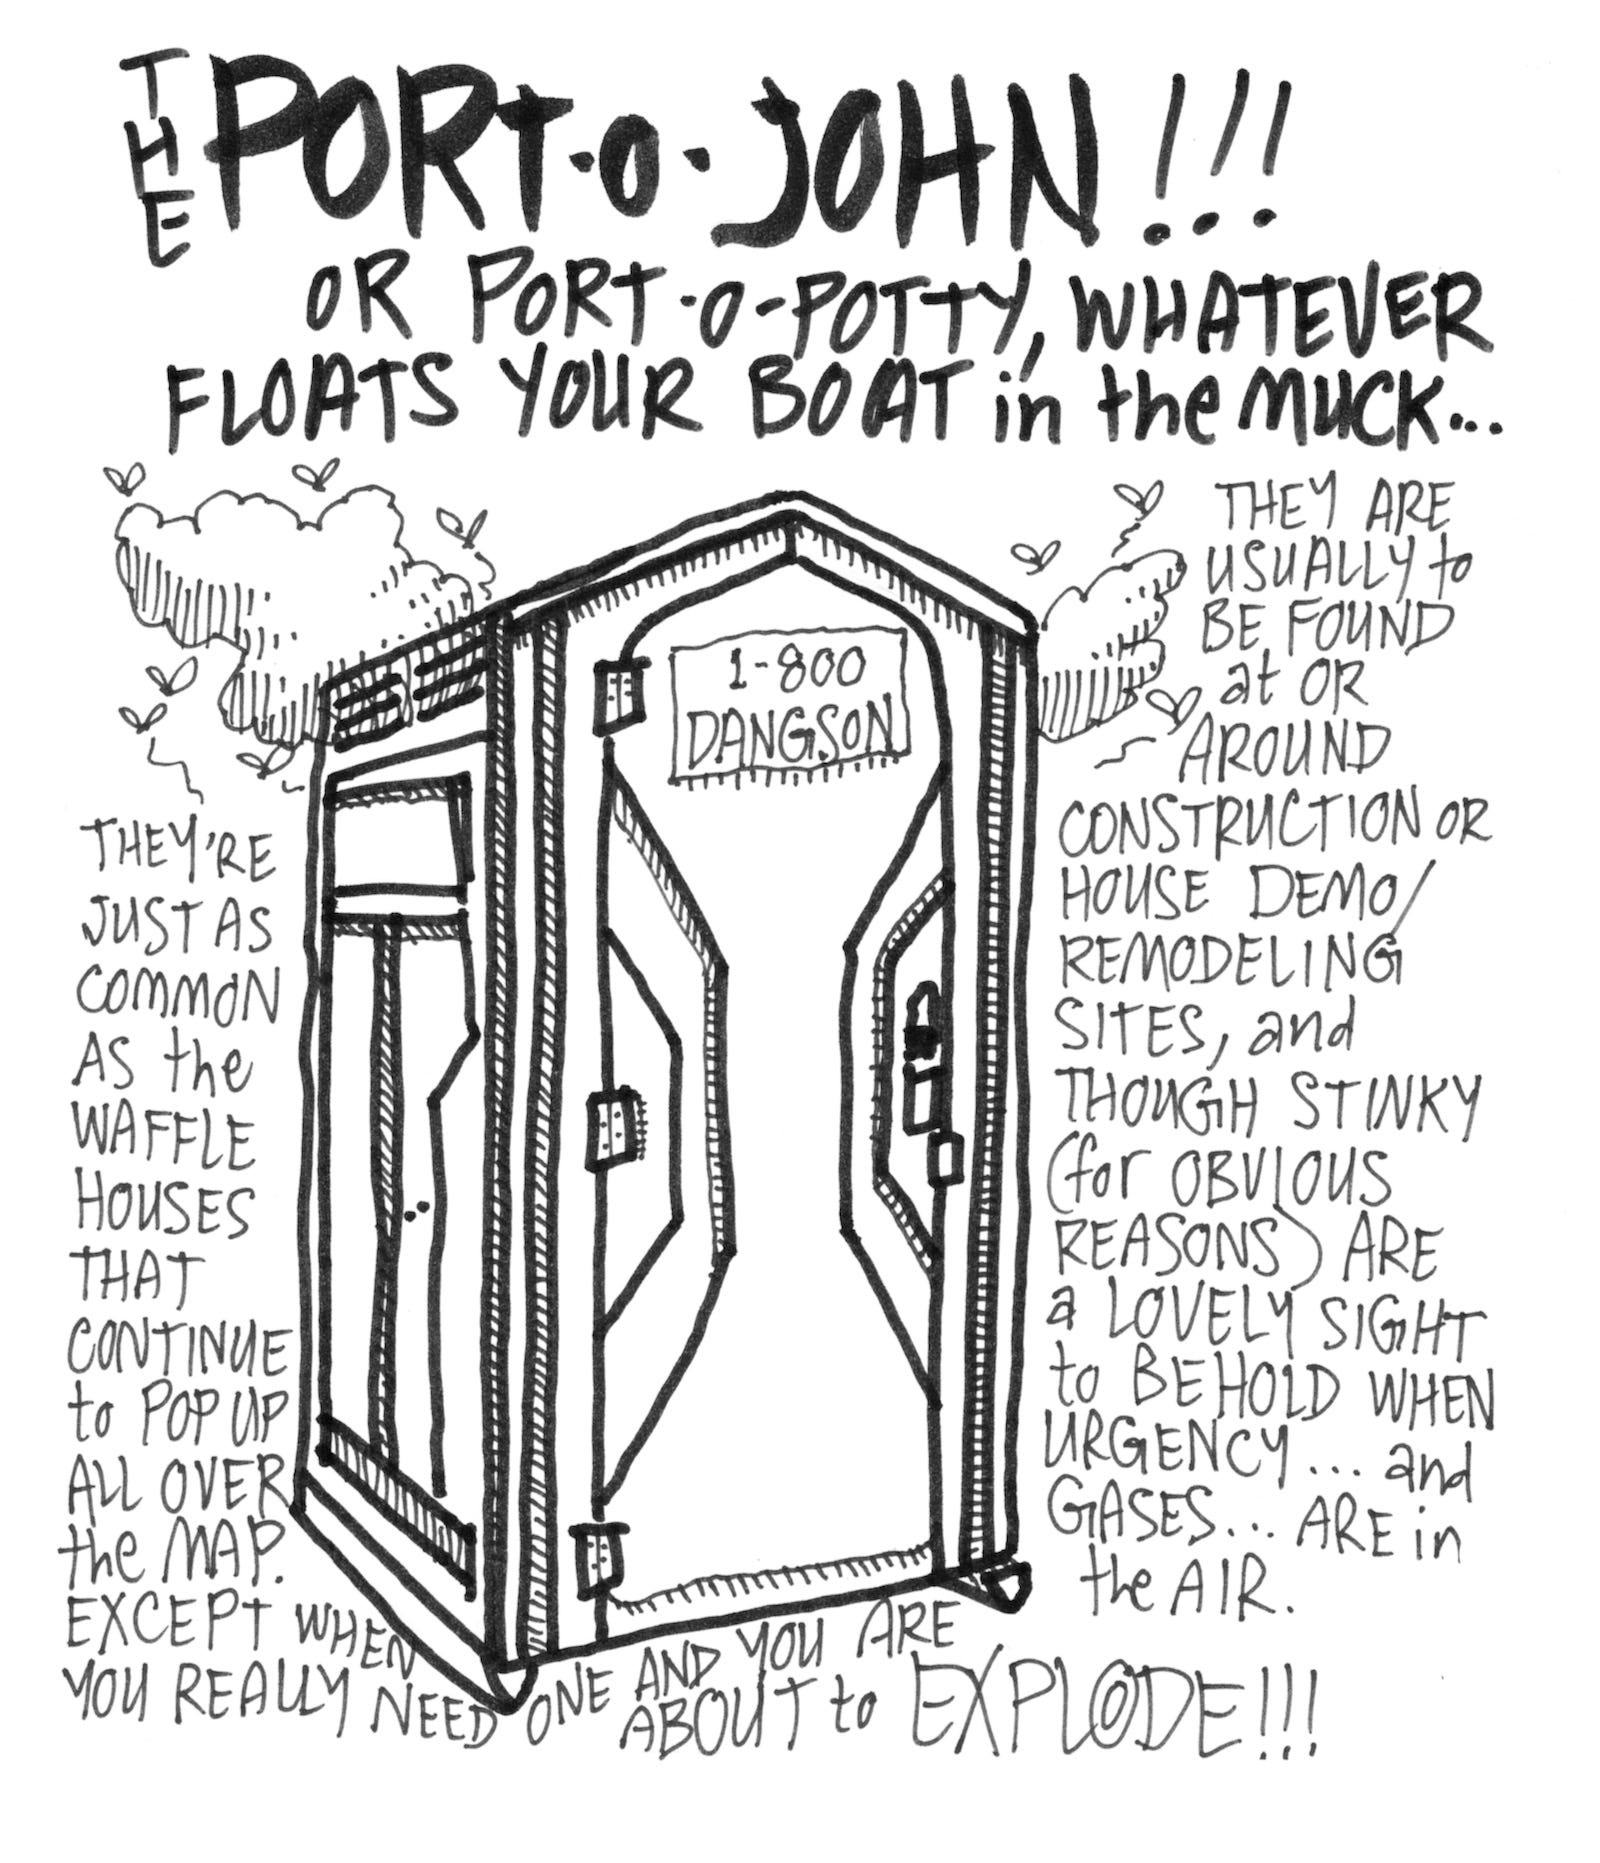 THE PORT-O-JOHN!!!
OR PORT-O-POTTY, WHATEVER
FLOATS YOUR BOAT in the MUCK...
1-800
DANGSON
THEY'RE
JUST AS
COMMON
AS the
WAFFLE
HOUSES
THAT
CONTINUE
to POP UP
ALL OVER
the MAP.
EXCEPT WHEN
YOU REALLY NEED ONE AND YOU ARE
ABOUT to EXPLODE!!!
THEY ARE
USUALLY to
BE FOUND
at OR
AROUND
CONSTRUCTION OR
HOUSE DEMO/
REMODELING
SITES, and
THOUGH STINKY
(for OBVIOUS
REASONS) ARE
a LOVELY SIGHT
to BEHOLD WHEN
URGENCY... and
GASES... ARE in
the AIR.